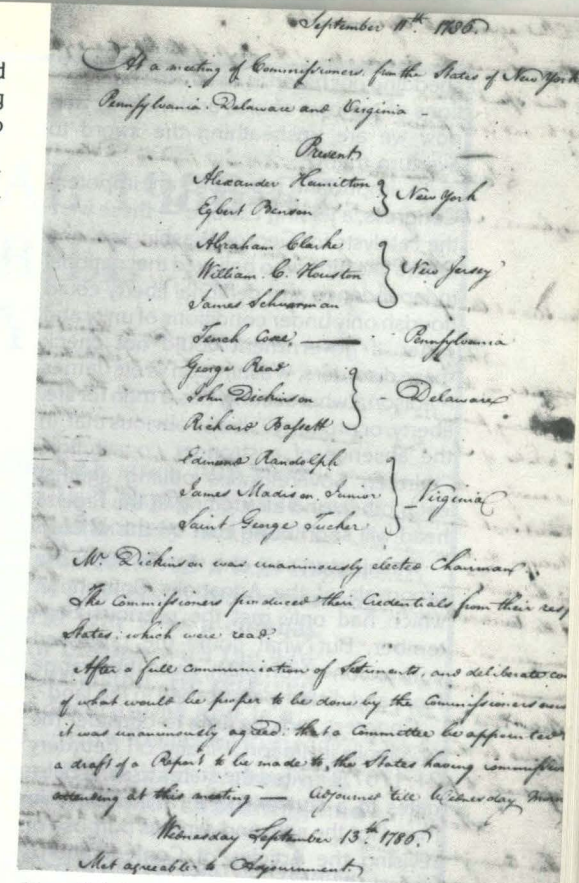 September 11th. 1786.
At a meeting of Commissioners from the States of New York
Pennsylvania. Delaware and Virginia —
Present
Alexander Hamilton
Egbert Benson } New York
Abraham Clarke
William. C. Houston } New Jersey
James Schuarman
Tench Coxe, — Pennsylvania
George Read
John Dickinson } - Delaware
Richard Bassett
Edmund Randolph
James Madison, Junior } - Virginia
Saint George Tucker
Mr. Dickinson was unanimously elected Chairman.
The Commissioners produced their Credentials from their resp
States; which were read.
After a full communication of Sentiments, and deliberate co
of what would be proper to be done by the Commissioners
it was unanimously agreed: that a Committee be appointed
a draft of a Report to be made to, the States having
attending at this meeting — Adjourned till Wednesday
Wednesday September 13th. 1786.
Met agreeable to Adjournment.